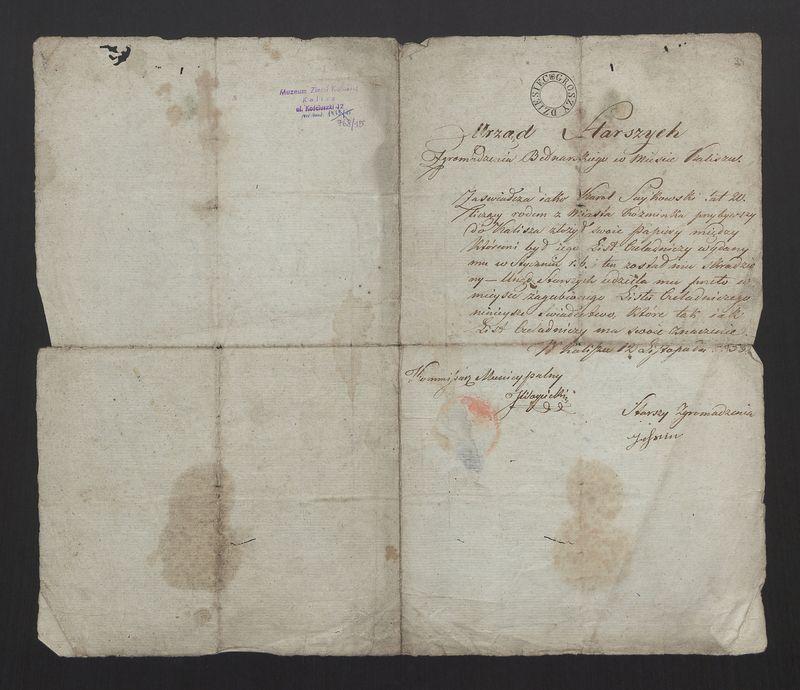 Muzeum Ziemi Kaliskiej
Kalisz
ul. Kościuszki 12
768/15
DZIESIEC GROSZY
Urząd Starszych
Zgromadzenia Bednarskiego w Mieście Kaliszu.
Zaświadcza iako Karol lat 20.
liczący rodem z Miasta Kozminka przybywszy
do Kalisza złozył swoie Papiery między
któremi był iego List Czeladniczy wydany
mu w Styczniu r. b. i ten został mu skradzio
ny — Urząd Starszych udziela mu przeto w
mieysce zagubionego Listu Czeladniczego
ninieysze Swiadectwo, które tak iak
List Czeladniczy ma swoie znaczenie.
W Kaliszu 12 Listopada
Kommissarz Municypalny
Starszy Zgromadzenia